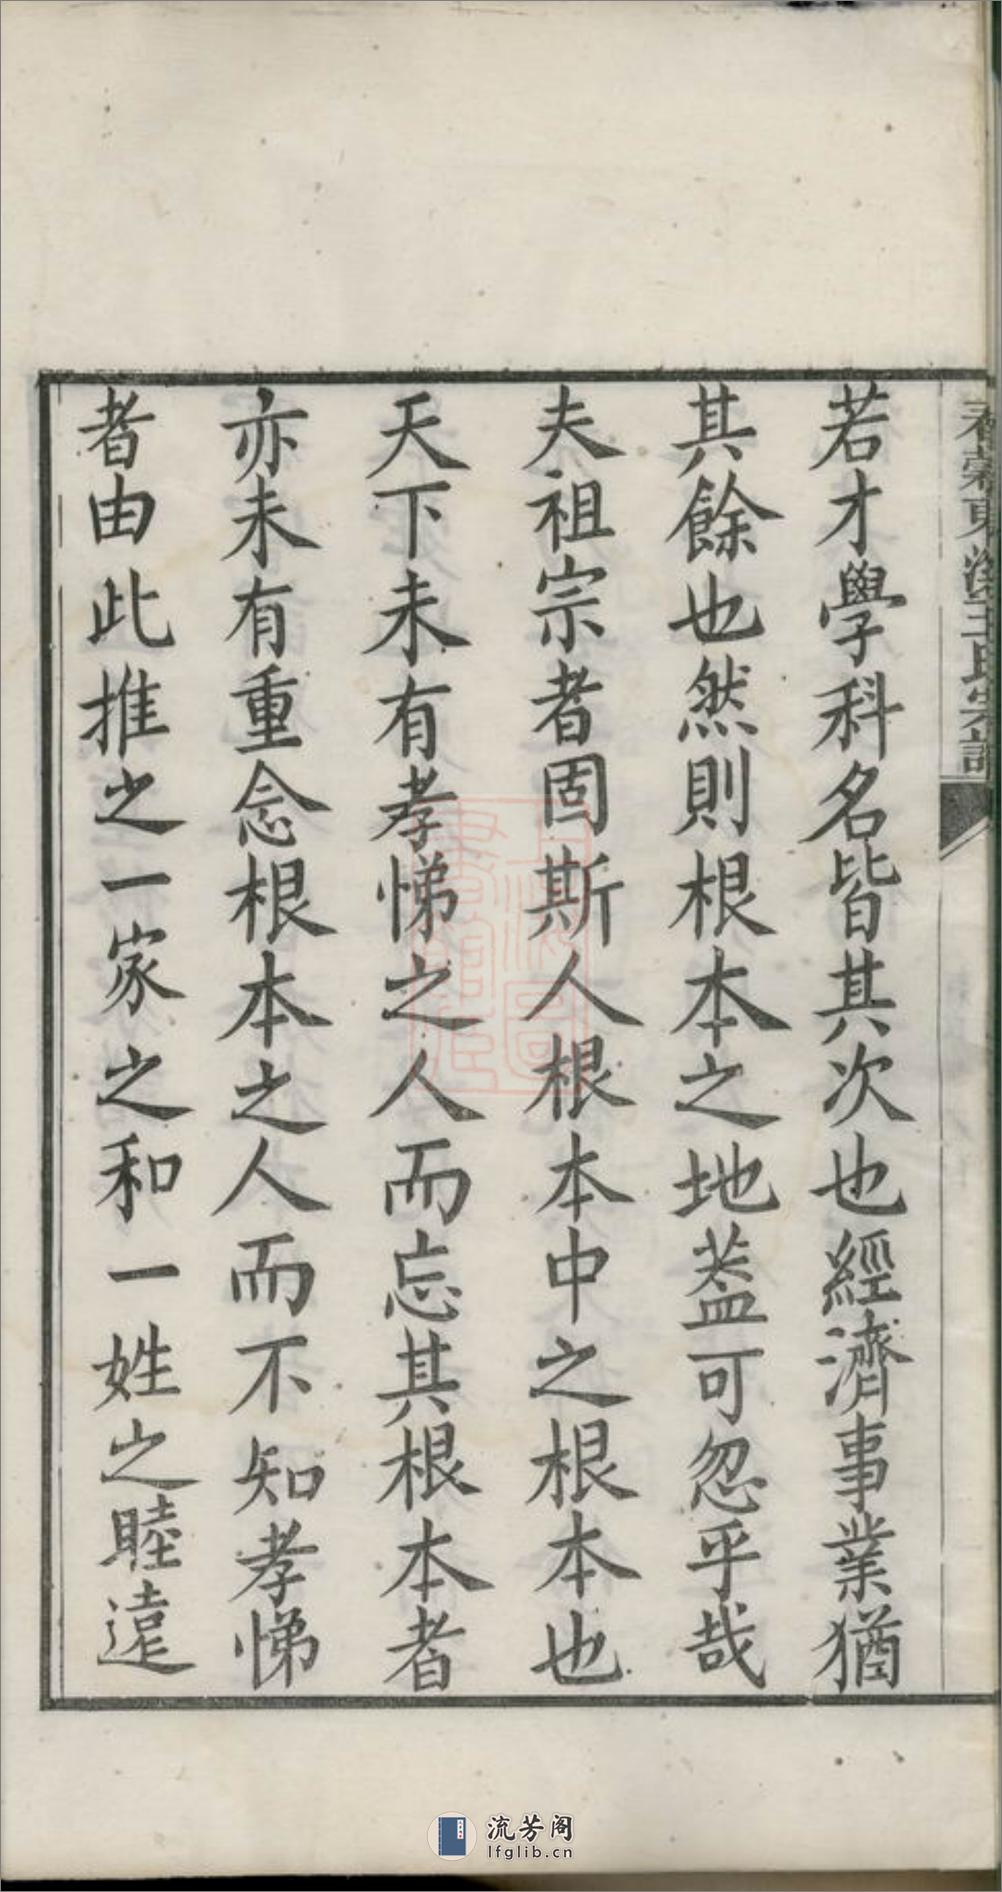 春穀東溪王氏宗譜
若才學科名皆其次也經濟事業猶
其餘也然則根本之地葢可忽乎哉
夫祖宗者固斯人根本中之根本也
天下未有孝悌之人而忘其根本者
亦未有重念根本之人而不知孝悌
者由此推之一家之和一姓之睦遠
流芳阁
lfglib.cn